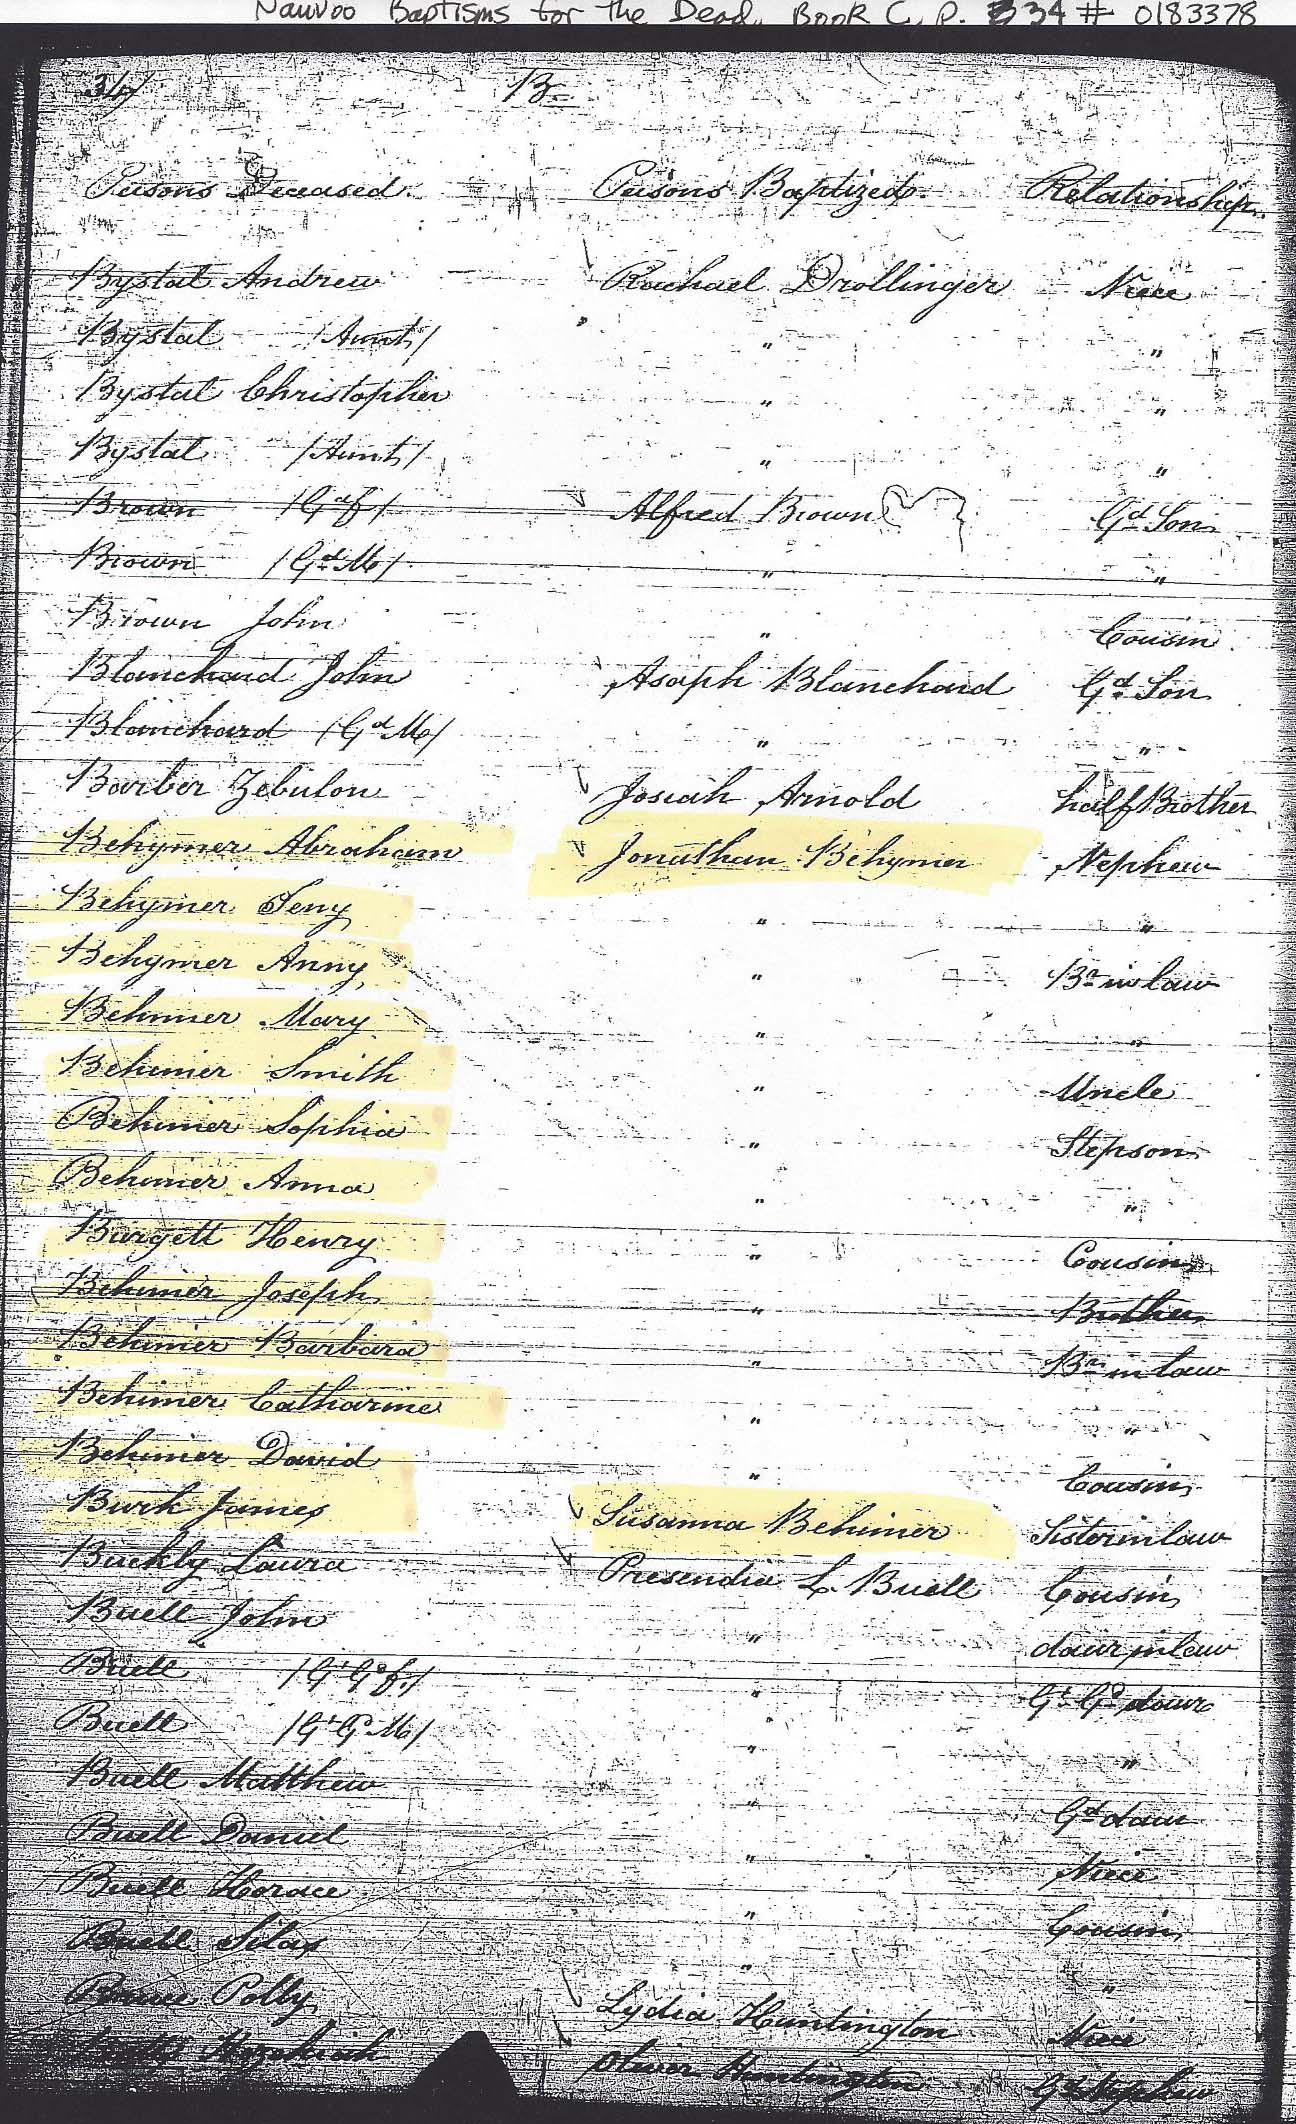 Nauvoo Baptisms for the Dead, Book C, p. 34 # 0183378
34 B
Persons Deceased. Persons Baptized. Relationship.
Bystal Andrew Rachael Drollinger Niece
Bystal /Aunt/ " "
Bystal Christopher " "
Bystal /Aunt/ " "
Brown /Gd f/ Alfred Brown Gd Son
Brown /Gd M/ " "
Brown John " Cousin
Blanchard John Asaph Blanchard Gd Son
Blanchard /Gd M/ " "
Barber Zebulon Josiah Arnold half Brother
Behymer Abraham Jonathan Behymer Nephew
Behymer Feny " "
Behymer Anny " Br in law
Behimer Mary " "
Behimer Smith " Uncle
Behimer Sophia " Stepson
Behimer Anna " "
Burgett Henry " Cousin
Behimer Joseph " Brother
Behimer Barbara " Br in law
Behimer Catharine " "
Behimer David " Cousin
Burk James Susanna Behimer Sister in law
Buckly Laura Presendia L. Buell Cousin
Buell John " daur in law
Buell /Gt Gd f./ " Gt Gd daur
Buell /Gt Gd M/ " "
Buell Matthew " Gd daur
Buell Daniel " Niece
Buell Horace " Cousin
Buell Silas " "
Polly Lydia Huntington Niece
Hezekiah Oliver Huntington Gd Nephew